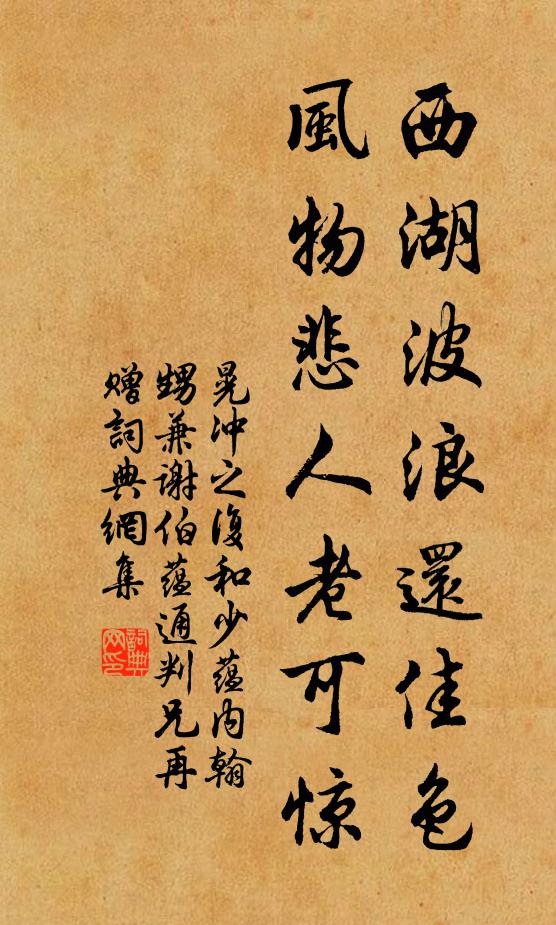 西湖波浪還佳色
風物悲人老可惊
晁沖之復和少蘊内翰
甥兼謝伯蘊通判兄再
贈詞典網集
詞典
网印